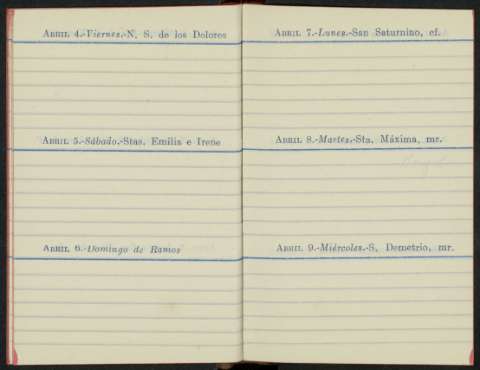 ABRIL 4.-Viernes.-N. S. de los Dolores
ABRIL 5.-Sábado.-Stas. Emilia e Irene
ABRIL 6.-Domingo de Ramos
ABRIL 7.-Lunes.-San Saturnino, cf.
ABRIL 8.-Martes.-Sta. Máxima, mr.
ABRIL 9.-Miércoles.-S. Demetrio, mr.